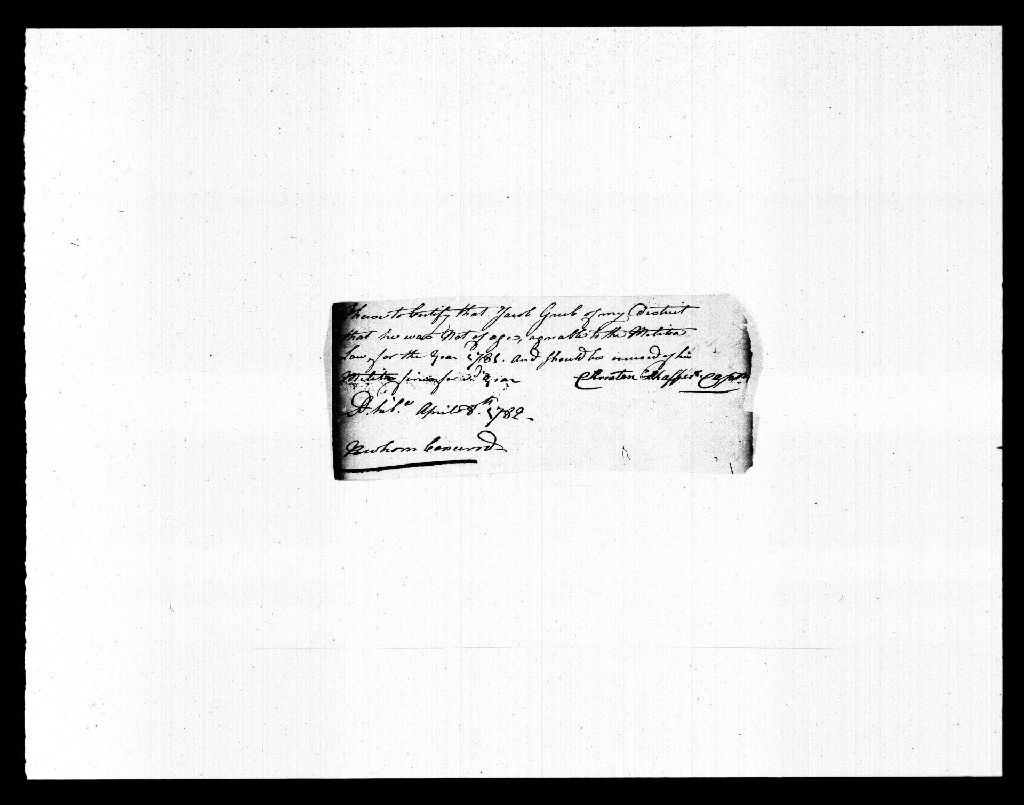 These to Certify that Jacob Grub of my District
that he was Not of age, agreable to the Militia
Law, for the Year 1781. And Should be excused of his
Militia fines for sd. Year Capt.
April 8th. 1782
To whom Concernd